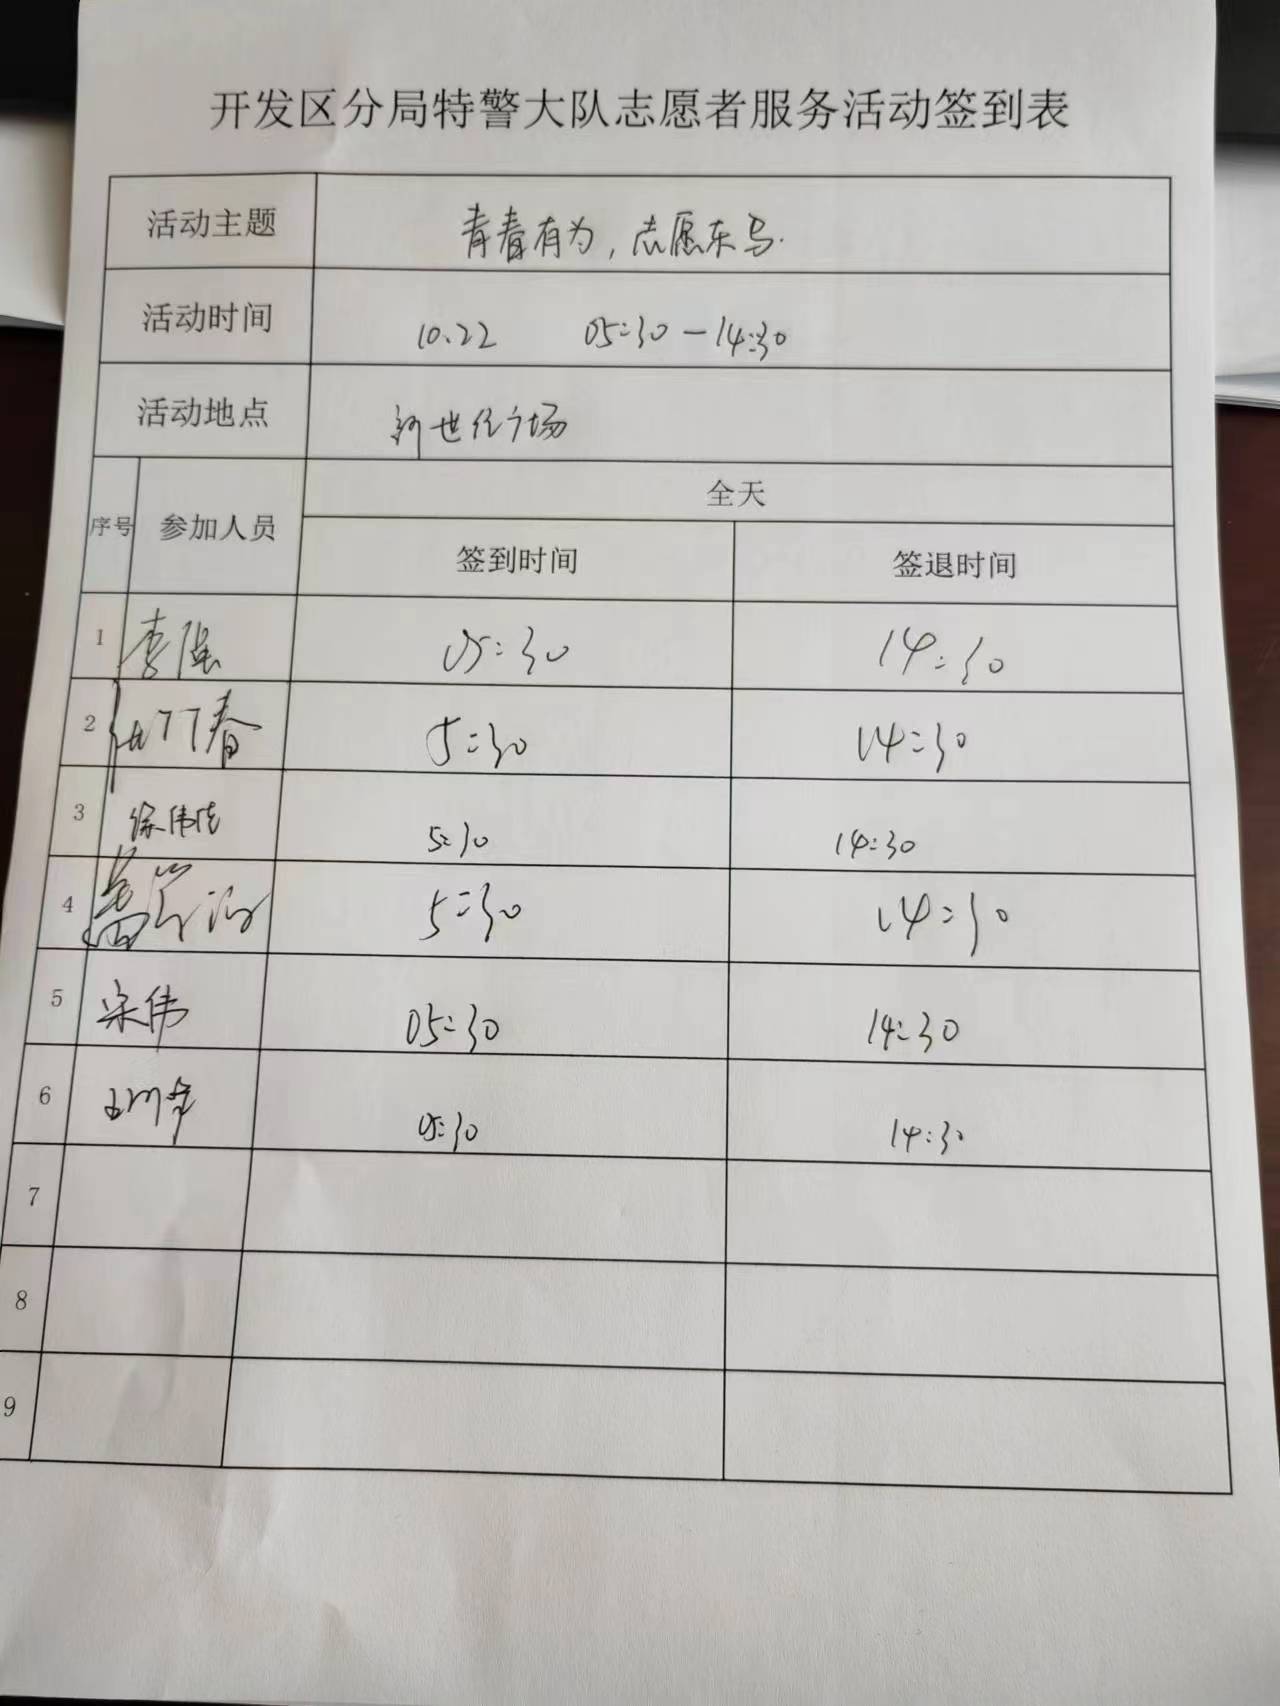 开发区分局特警大队志愿者服务活动签到表
活动主题 青春有为，志愿东马.
活动时间 10.22 05:30-14:30
活动地点 新世纪广场
序号 参加人员 全天
签到时间 签退时间
1 李强 05:30 14:30
2 5:30 14:30
3 徐伟 5:30 14:30
4 5:30 14:30
5 宋伟 05:30 14:30
6 王 05:30 14:30
7
8
9